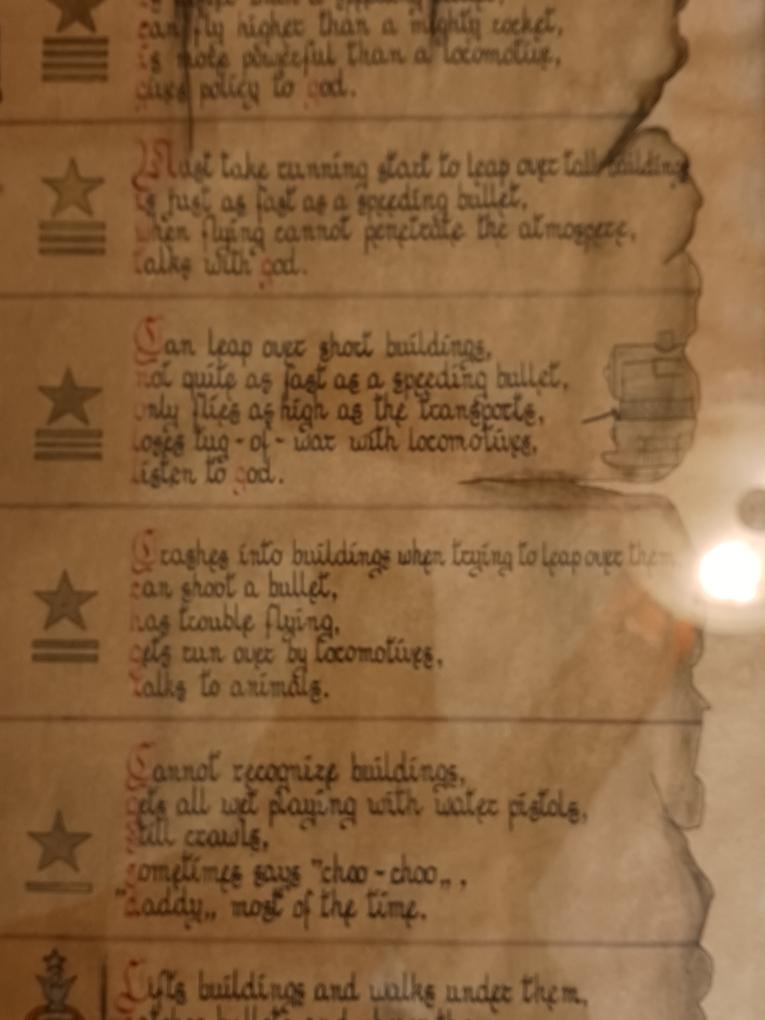 can fly higher than a mighty rocket,
is more powerful than a locomotive,
gives policy to god.
Must take running start to leap over tall buildings
is just as fast as a speeding bullet,
when flying cannot penetrate the atmospere,
talks with god.
Can leap over short buildings,
not quite as fast as a speeding bullet,
only flies as high as the transports,
loses tug-of-war with locomotives,
listen to god.
Crashes into buildings when trying to leap over them,
can shoot a bullet,
has trouble flying,
gets run over by locomotives,
talks to animals.
Cannot recognize buildings,
gets all wet playing with water pistols,
still crawls,
sometimes says "choo-choo„,
"daddy„ most of the time.
Lifts buildings and walks under them,